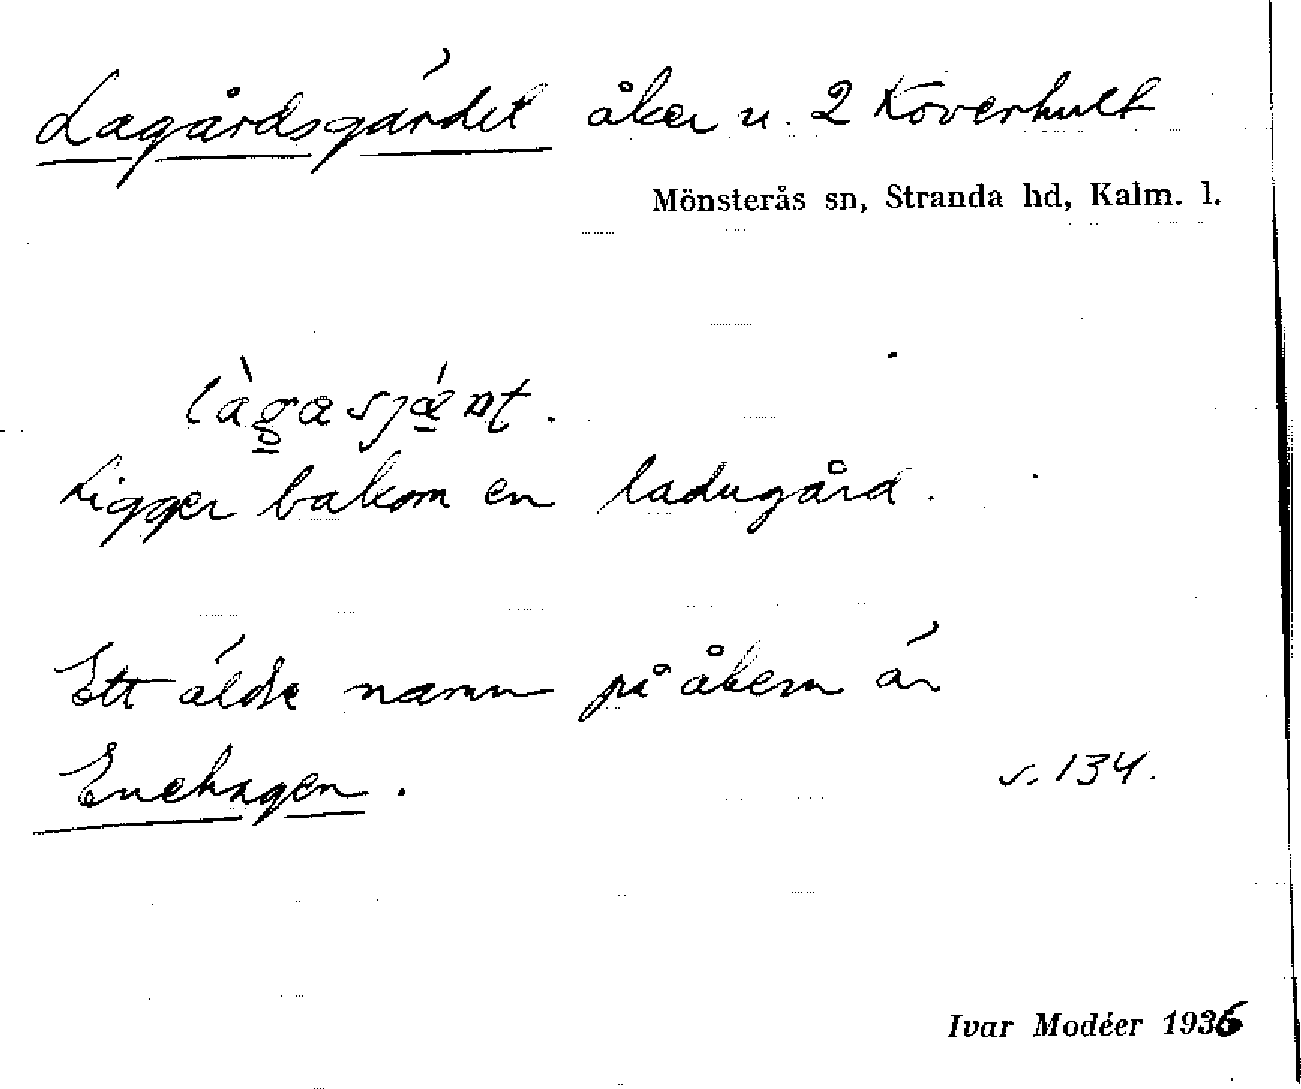 Lagårdsgärdet åker u. 2 Köverhult
Mönsterås sn, Stranda hd, Kalm. l.
Ligger bakom en ladugård.
Ett äldre namn på åkern är
Enehagen.
s. 134.
Ivar Modéer 1936